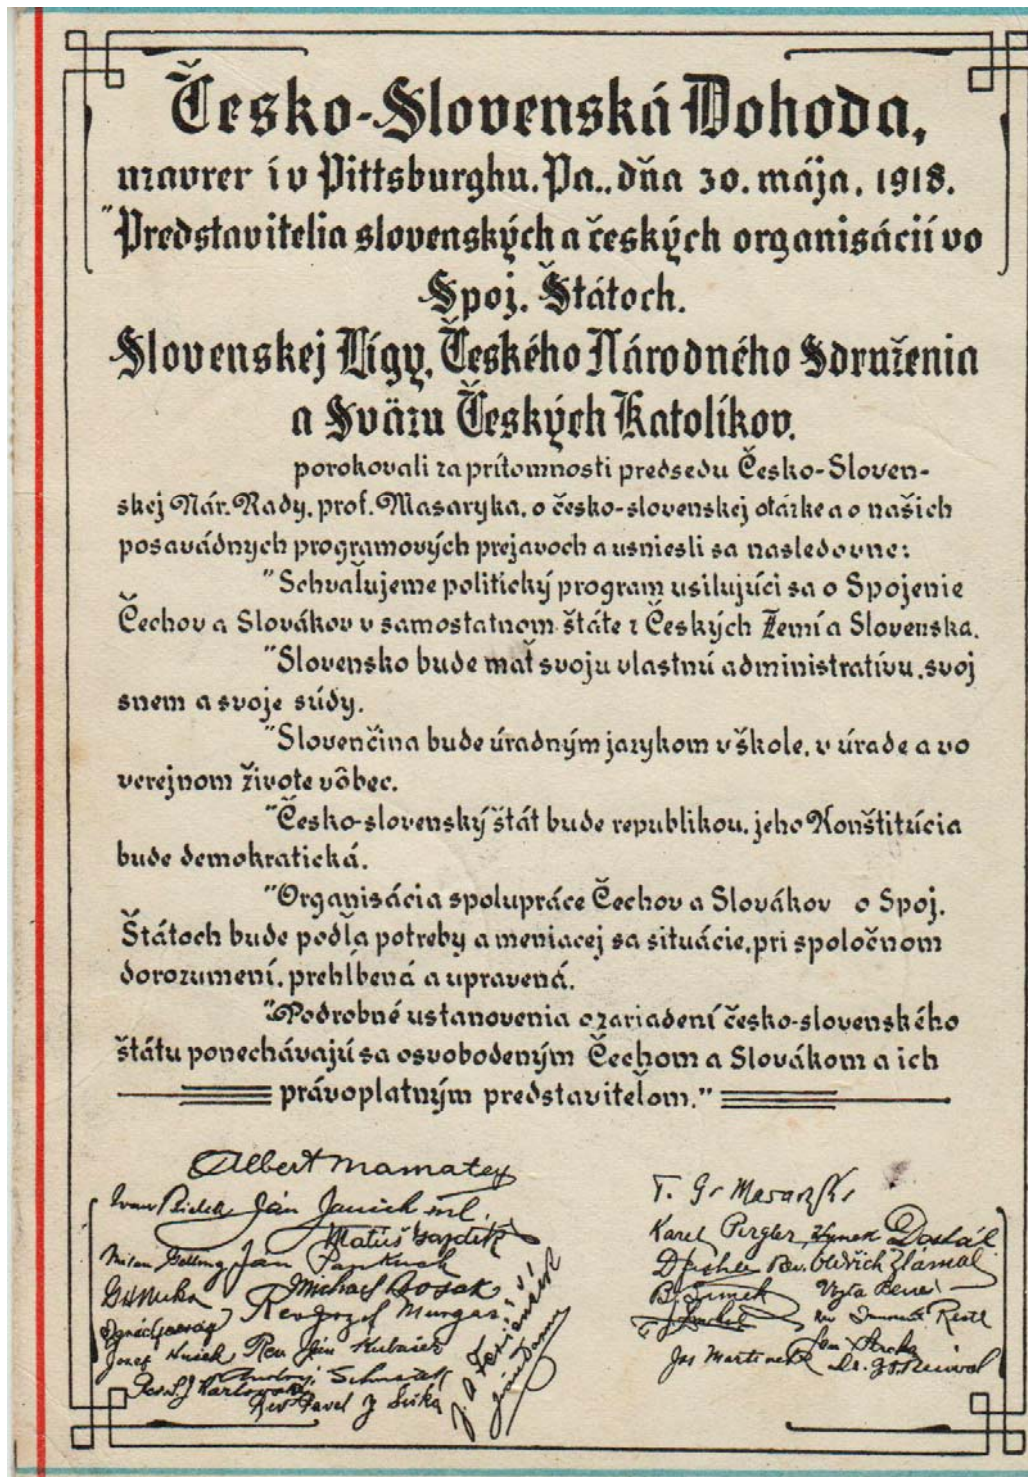 Česko-Slovenská Dohoda,
uzavrer í v Pittsburghu, Pa., dňa 30. mája, 1918.
"Predstavitelia slovenských a českých organisácií vo
Spoj. Štátoch.
Slovenskej Lígy, Českého Národného Sdruženia
a Sväzu Českých Katolíkov,
porokovali za prítomnosti predsedu Česko-Sloven-
skej Nár. Rady, prof. Masaryka, o česko-slovenskej otázke a o našich
posavádnych programových prejavoch a usniesli sa nasledovne:
"Schvaľujeme politický program usilujúci sa o Spojenie
Čechov a Slovákov v samostatnom štáte z Českých Zemí a Slovenska.
"Slovensko bude mať svoju vlastnú administratívu, svoj
snem a svoje súdy.
"Slovenčina bude úradným jazykom v škole, v úrade a vo
verejnom živote vôbec.
"Česko-slovenský štát bude republikou, jeho Konštitúcia
bude demokratická.
"Organisácia spolupráce Čechov a Slovákov o Spoj.
Štátoch bude podľa potreby a meniacej sa situácie, pri spoločnom
dorozumení, prehĺbená a upravená.
"Podrobné ustanovenia o zariadení česko-slovenského
štátu ponechávajú sa osvobodeným Čechom a Slovákom a ich
právoplatným predstaviteľom."
Albert Mamatey
Ján Janček ml.
Matúš Gajdík
Milan Getting Ján Pankuch
Michael Bosak
Rev Jozef Murgaš
Jozef Hušek Rev Ján Kubašek
Andrej Schmidt
Rev Pavel J Šiška
T. G. Masaryk
Karel Pergler, Hynek Dostál
Rev. Oldřich Zlámal
B. Šimek Vojta Beneš
Jos Martinek